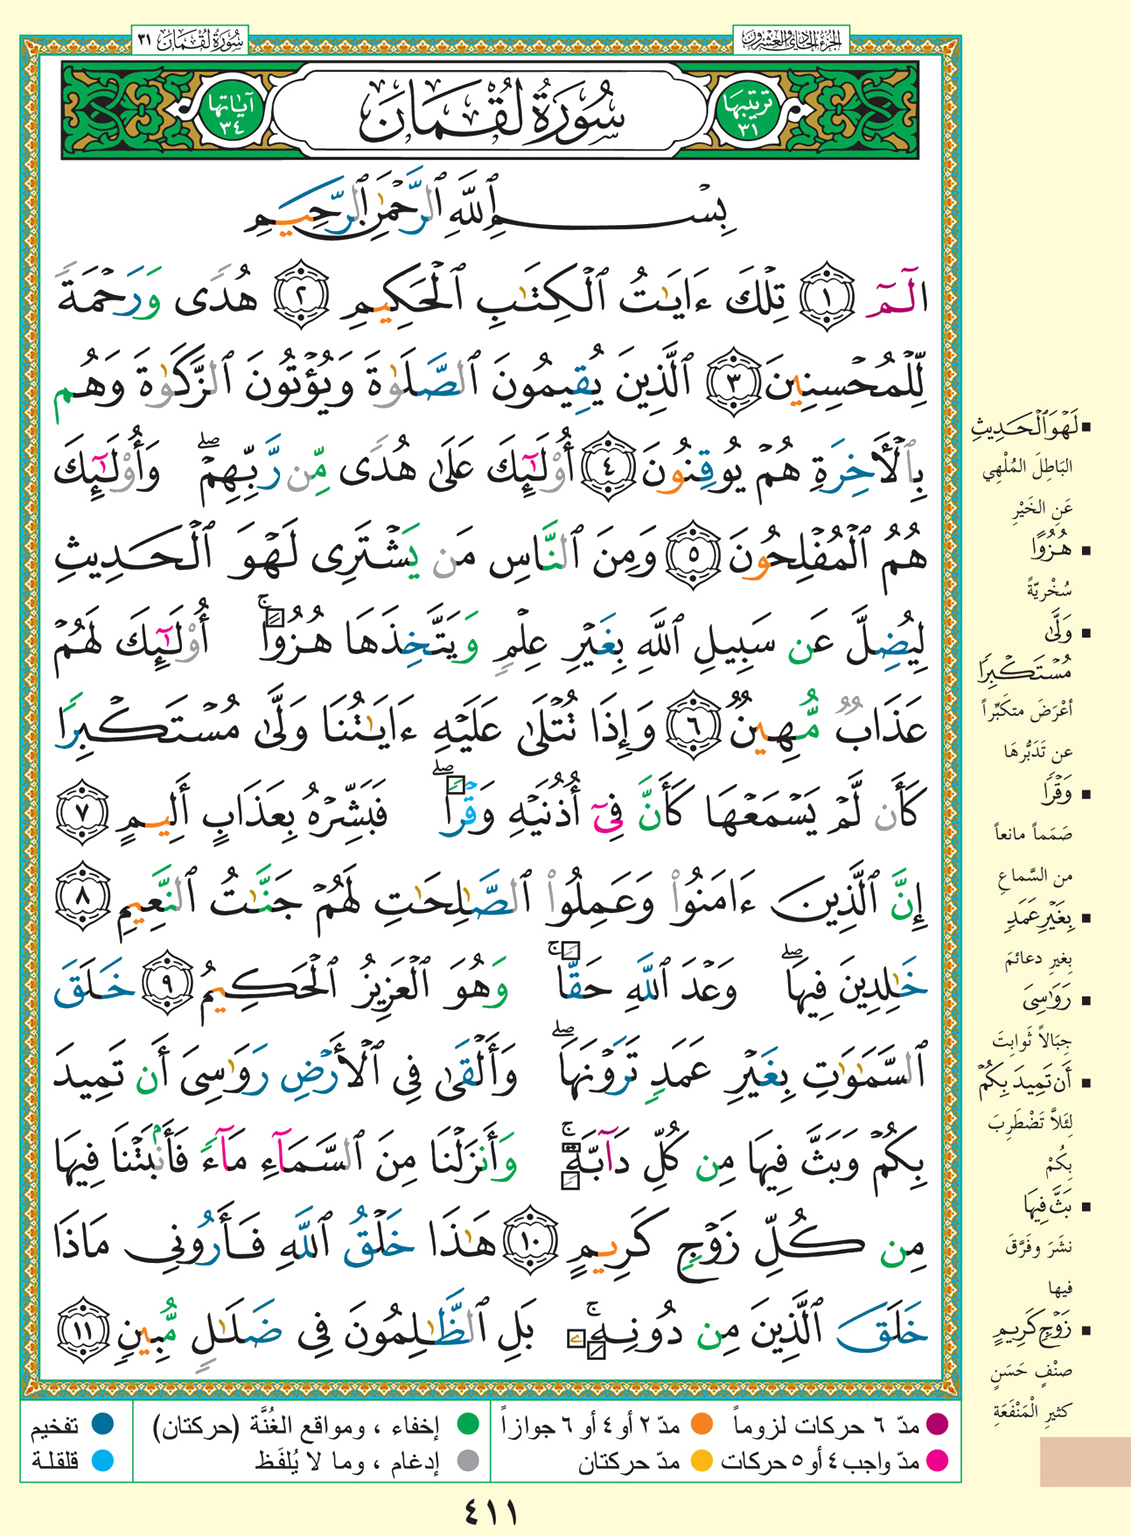 الجزء الحادي والعشرون
سُورَةُ لُقْمَان ٣١
ترتيبها ٣١
سُورَةُ لُقْمَان
آياتها ٣٤
بِسْمِ ٱللَّهِ ٱلرَّحْمَٰنِ ٱلرَّحِيمِ
الٓمٓ ١ تِلْكَ ءَايَٰتُ ٱلْكِتَٰبِ ٱلْحَكِيمِ ٢ هُدًى وَرَحْمَةً
لِّلْمُحْسِنِينَ ٣ ٱلَّذِينَ يُقِيمُونَ ٱلصَّلَوٰةَ وَيُؤْتُونَ ٱلزَّكَوٰةَ وَهُم
بِٱلْأَخِرَةِ هُمْ يُوقِنُونَ ٤ أُوْلَٰٓئِكَ عَلَىٰ هُدًى مِّن رَّبِّهِمْ ۖ وَأُوْلَٰٓئِكَ
هُمُ ٱلْمُفْلِحُونَ ٥ وَمِنَ ٱلنَّاسِ مَن يَشْتَرِى لَهْوَ ٱلْحَدِيثِ
لِيُضِلَّ عَن سَبِيلِ ٱللَّهِ بِغَيْرِ عِلْمٍ وَيَتَّخِذَهَا هُزُوًا ۚ أُوْلَٰٓئِكَ لَهُمْ
عَذَابٌ مُّهِينٌ ٦ وَإِذَا تُتْلَىٰ عَلَيْهِ ءَايَٰتُنَا وَلَّىٰ مُسْتَكْبِرًا
كَأَن لَّمْ يَسْمَعْهَا كَأَنَّ فِىٓ أُذُنَيْهِ وَقْرًا ۖ فَبَشِّرْهُ بِعَذَابٍ أَلِيمٍ ٧
إِنَّ ٱلَّذِينَ ءَامَنُوا۟ وَعَمِلُوا۟ ٱلصَّٰلِحَٰتِ لَهُمْ جَنَّٰتُ ٱلنَّعِيمِ ٨
خَٰلِدِينَ فِيهَا ۖ وَعْدَ ٱللَّهِ حَقًّا ۚ وَهُوَ ٱلْعَزِيزُ ٱلْحَكِيمُ ٩ خَلَقَ
ٱلسَّمَٰوَٰتِ بِغَيْرِ عَمَدٍ تَرَوْنَهَا ۖ وَأَلْقَىٰ فِى ٱلْأَرْضِ رَوَٰسِىَ أَن تَمِيدَ
بِكُمْ وَبَثَّ فِيهَا مِن كُلِّ دَآبَّةٍ ۚ وَأَنزَلْنَا مِنَ ٱلسَّمَآءِ مَآءً فَأَنۢبَتْنَا فِيهَا
مِن كُلِّ زَوْجٍ كَرِيمٍ ١٠ هَٰذَا خَلْقُ ٱللَّهِ فَأَرُونِى مَاذَا
خَلَقَ ٱلَّذِينَ مِن دُونِهِۦ ۚ بَلِ ٱلظَّٰلِمُونَ فِى ضَلَٰلٍ مُّبِينٍ ١١
▪ لَهْوَ ٱلْحَدِيثِ
البَاطِلَ المُلْهِي
عَنِ الخَيْرِ
▪ هُزُوًا
سُخْرِيَّةً
▪ وَلَّىٰ
مُسْتَكْبِرًا
أعْرَضَ متكَبِّراً
عن تَدَبُّرِهَا
▪ وَقْرًا
صَمَماً مانعاً
من السَّماعِ
▪ بِغَيْرِ عَمَدٍ
بِغيرِ دعائمَ
▪ رَوَٰسِىَ
جِبَالاً ثَوابِتَ
▪ أَن تَمِيدَ بِكُمْ
لِئَلاَّ تَضْطَرِبَ
بِكُمْ
▪ بَثَّ فِيهَا
نشَرَ وفَرَّقَ
فيها
▪ زَوْجٍ كَرِيمٍ
صنْفٍ حَسَنٍ
كثيرِ الْمَنْفَعَةِ
مدّ ٦ حركات لزوماً ● مدّ ٢ أو ٤ أو ٦ جوازاً ● إخفاء ، ومواقع الغُنَّة (حركتان) ● تفخيم
مدّ واجب ٤ أو ٥ حركات ● مدّ حركتان ● إدغام ، وما لا يُلفَظ ● قلقلة
٤١١